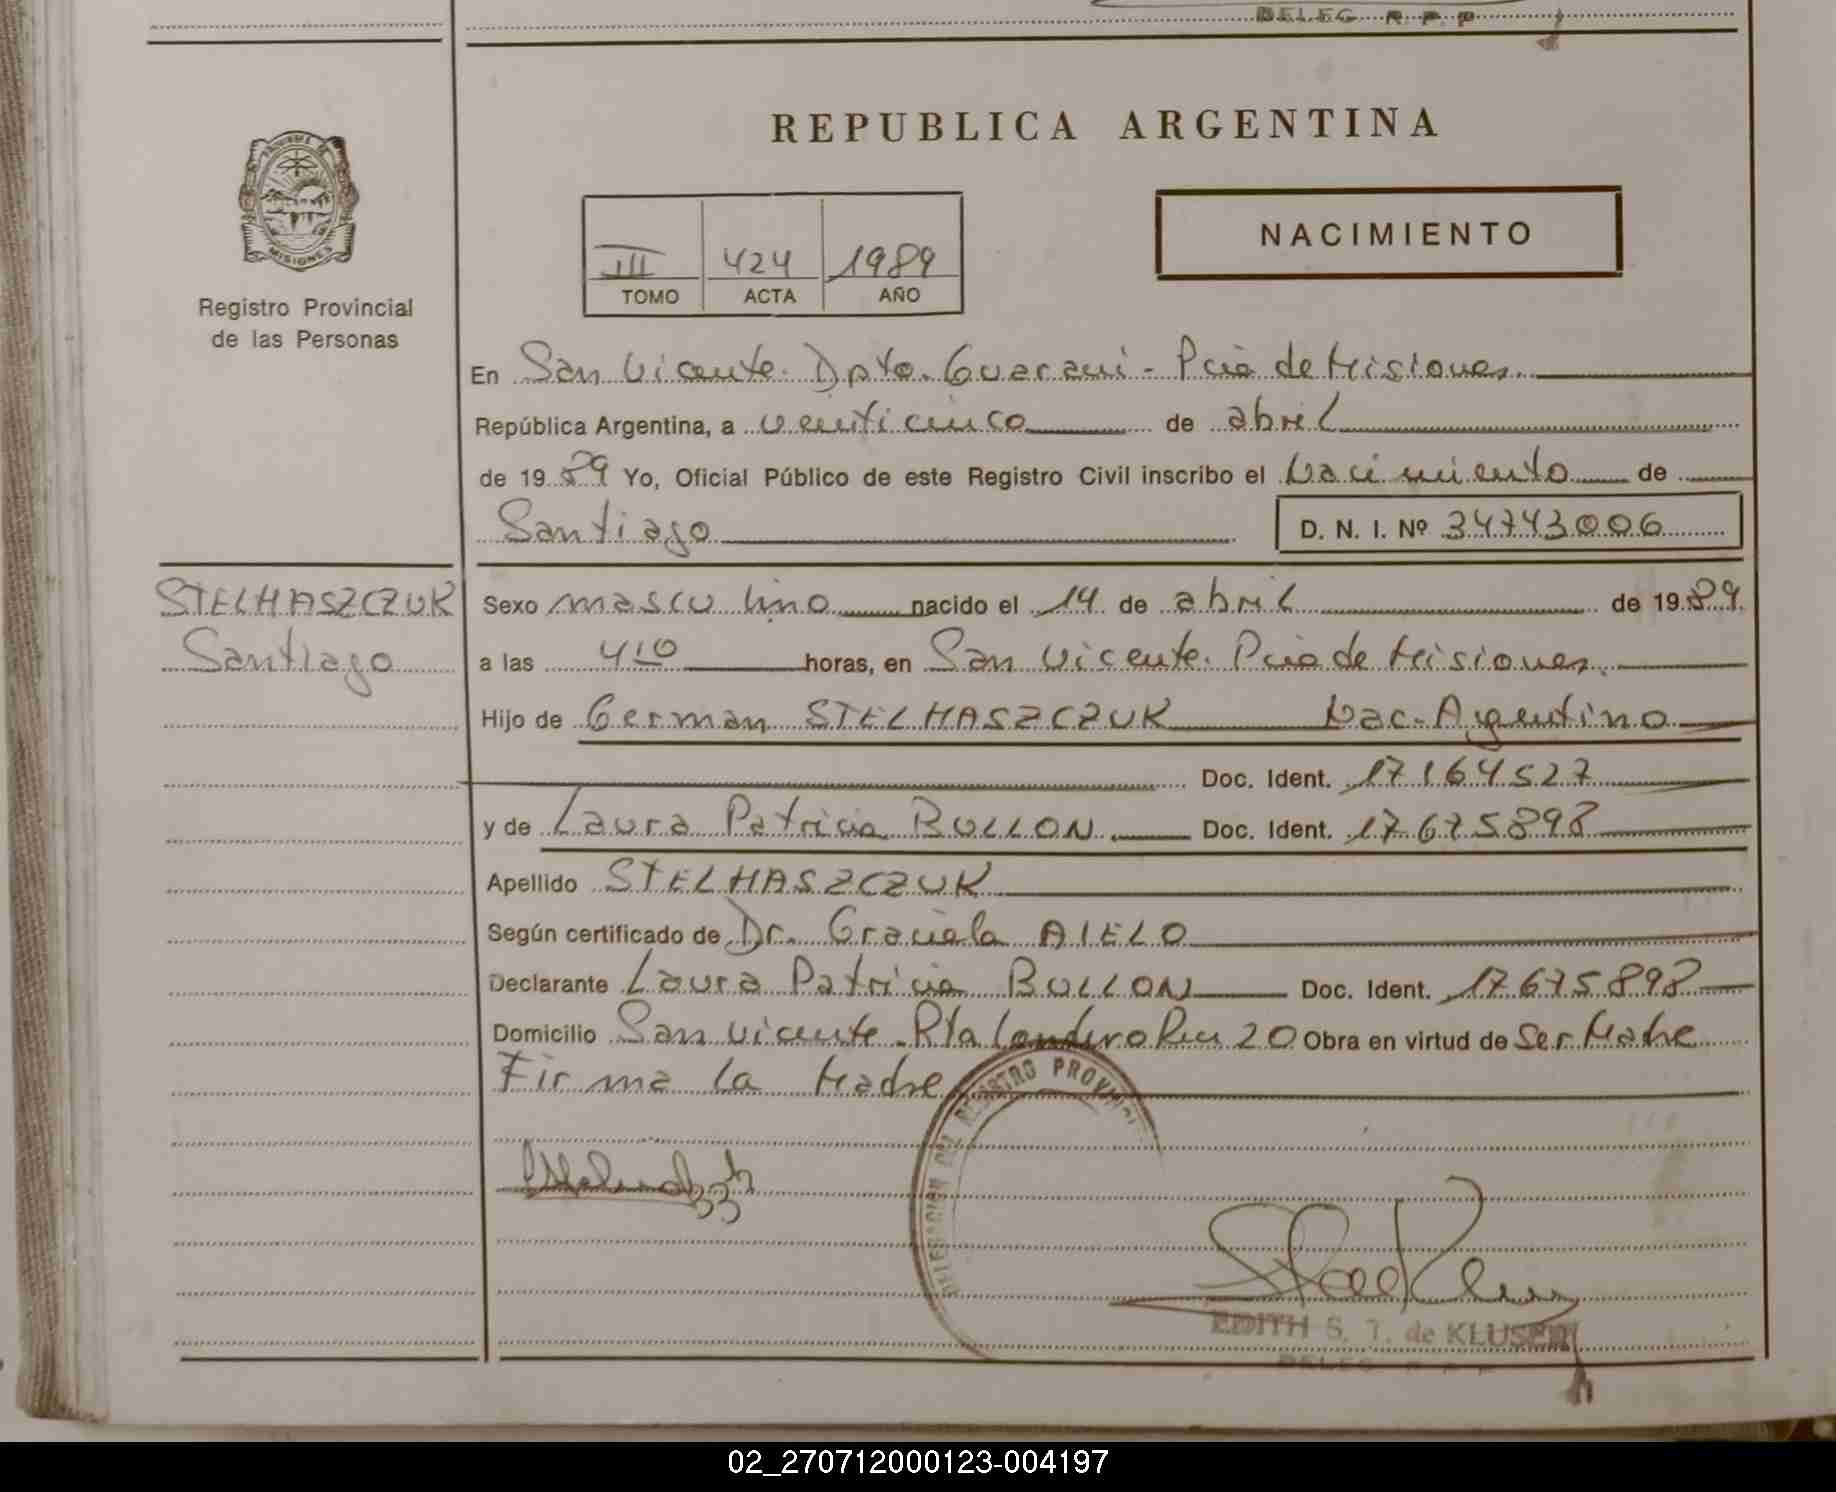 DELEG R. P. P
REPUBLICA ARGENTINA
PROVINCIA DE
MISIONES
Registro Provincial
de las Personas
III 424 1989
TOMO ACTA AÑO
NACIMIENTO
En San Vicente. Dpto. Guarani - Pcia de Misiones.
República Argentina, a venticinco de abril
de 1989 Yo, Oficial Público de este Registro Civil inscribo el Nacimiento de
Santiago D. N. I. Nº 34743006
STELHASZCZUK
Santiago
Sexo masculino nacido el 14 de abril de 1989.
a las 410 horas, en San Vicente. Pcia de Misiones.
Hijo de German STELHASZCZUK Nac. Argentino
Doc. Ident. 17164527
y de Laura Patricia BULLON. Doc. Ident. 17675898
Apellido STELHASZCZUK
Según certificado de Dr. Graciela AIELO
Declarante Laura Patricia BULLON Doc. Ident. 17675898
Domicilio San Vicente. Rta Londero Km 20 Obra en virtud de Ser Madre
Firma la Madre
DELEGACION DEL REGISTRO PROVINCI
EDITH S. T. de KLUSER
DELEG R P P
02_270712000123-004197